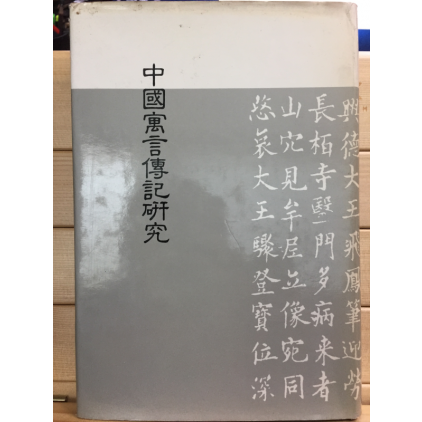 中國寓言傳記研究
興德大王飛鳳筆迎勞
長栢寺毉門多病来者
山穴見牟居立像宛同
慈氣大王驟登寶位深